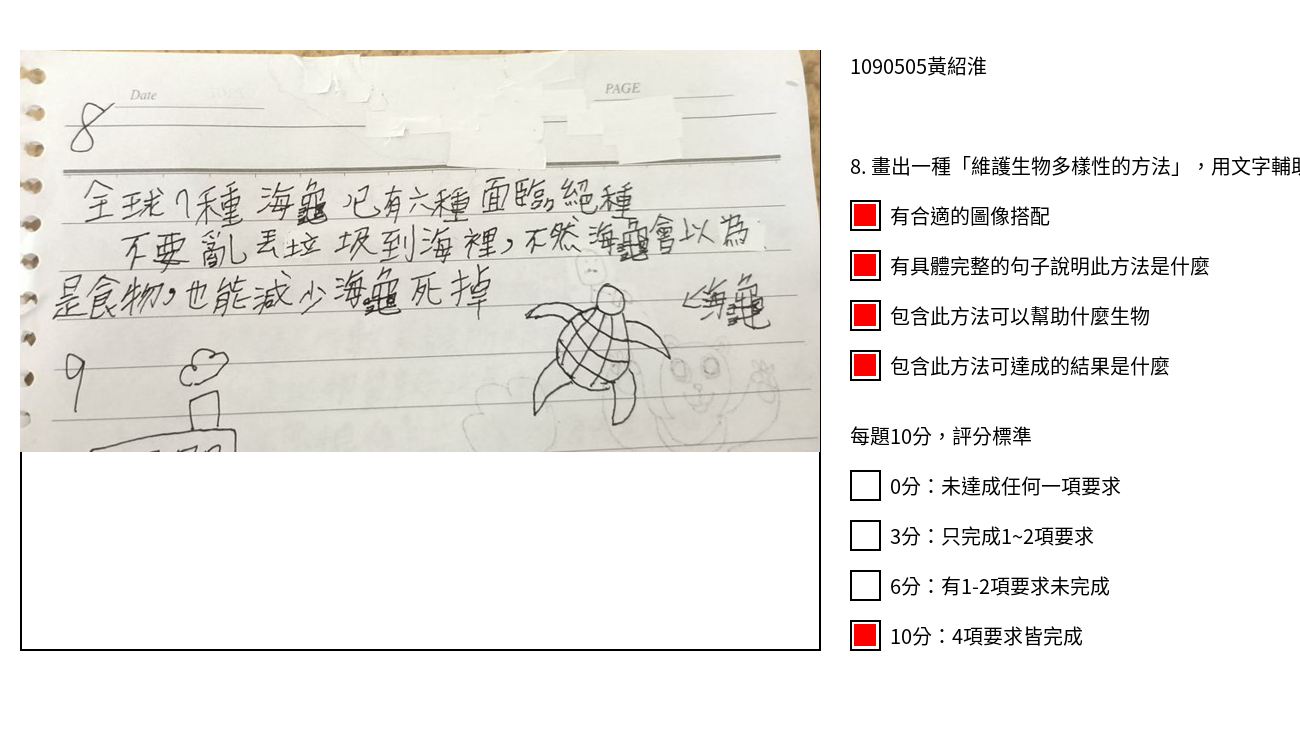 Date
PAGE
8
全球7種海龜已有六種面臨絕種
不要亂丟垃圾到海裡,不然海龜會以為
是食物,也能減少海龜死掉
海龜
9
1090505黃紹淮
8. 畫出一種「維護生物多樣性的方法」,用文字輔助
有合適的圖像搭配
有具體完整的句子說明此方法是什麼
包含此方法可以幫助什麼生物
包含此方法可達成的結果是什麼
每題10分,評分標準
0分:未達成任何一項要求
3分:只完成1~2項要求
6分:有1-2項要求未完成
10分:4項要求皆完成